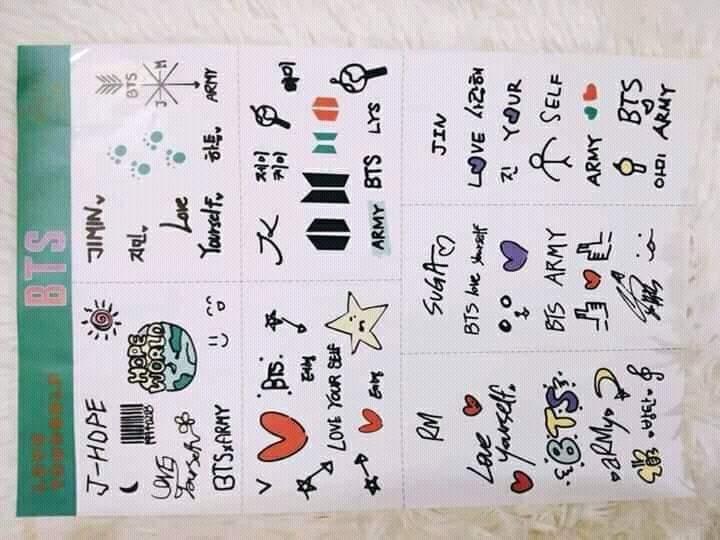 LOVE
YOURSELF
BTS
J-HOPE
HOPE
WORLD
LOVE
Yourself
BTS x ARMY
JIMIN
BTS
J M
ARMY
지민
Love
Yourself
하트
V
BTS:
LOVE YOUR SELF
JK
제이
케이
ARMY BTS LYS
RM
Love
yourself.
BTS
aRMy
방탄
SUGA
BTS love yourself
BTS ARMY
JIN
LOVE 사랑해
진 YOUR
SELF
ARMY
BTS
아미 ARMY